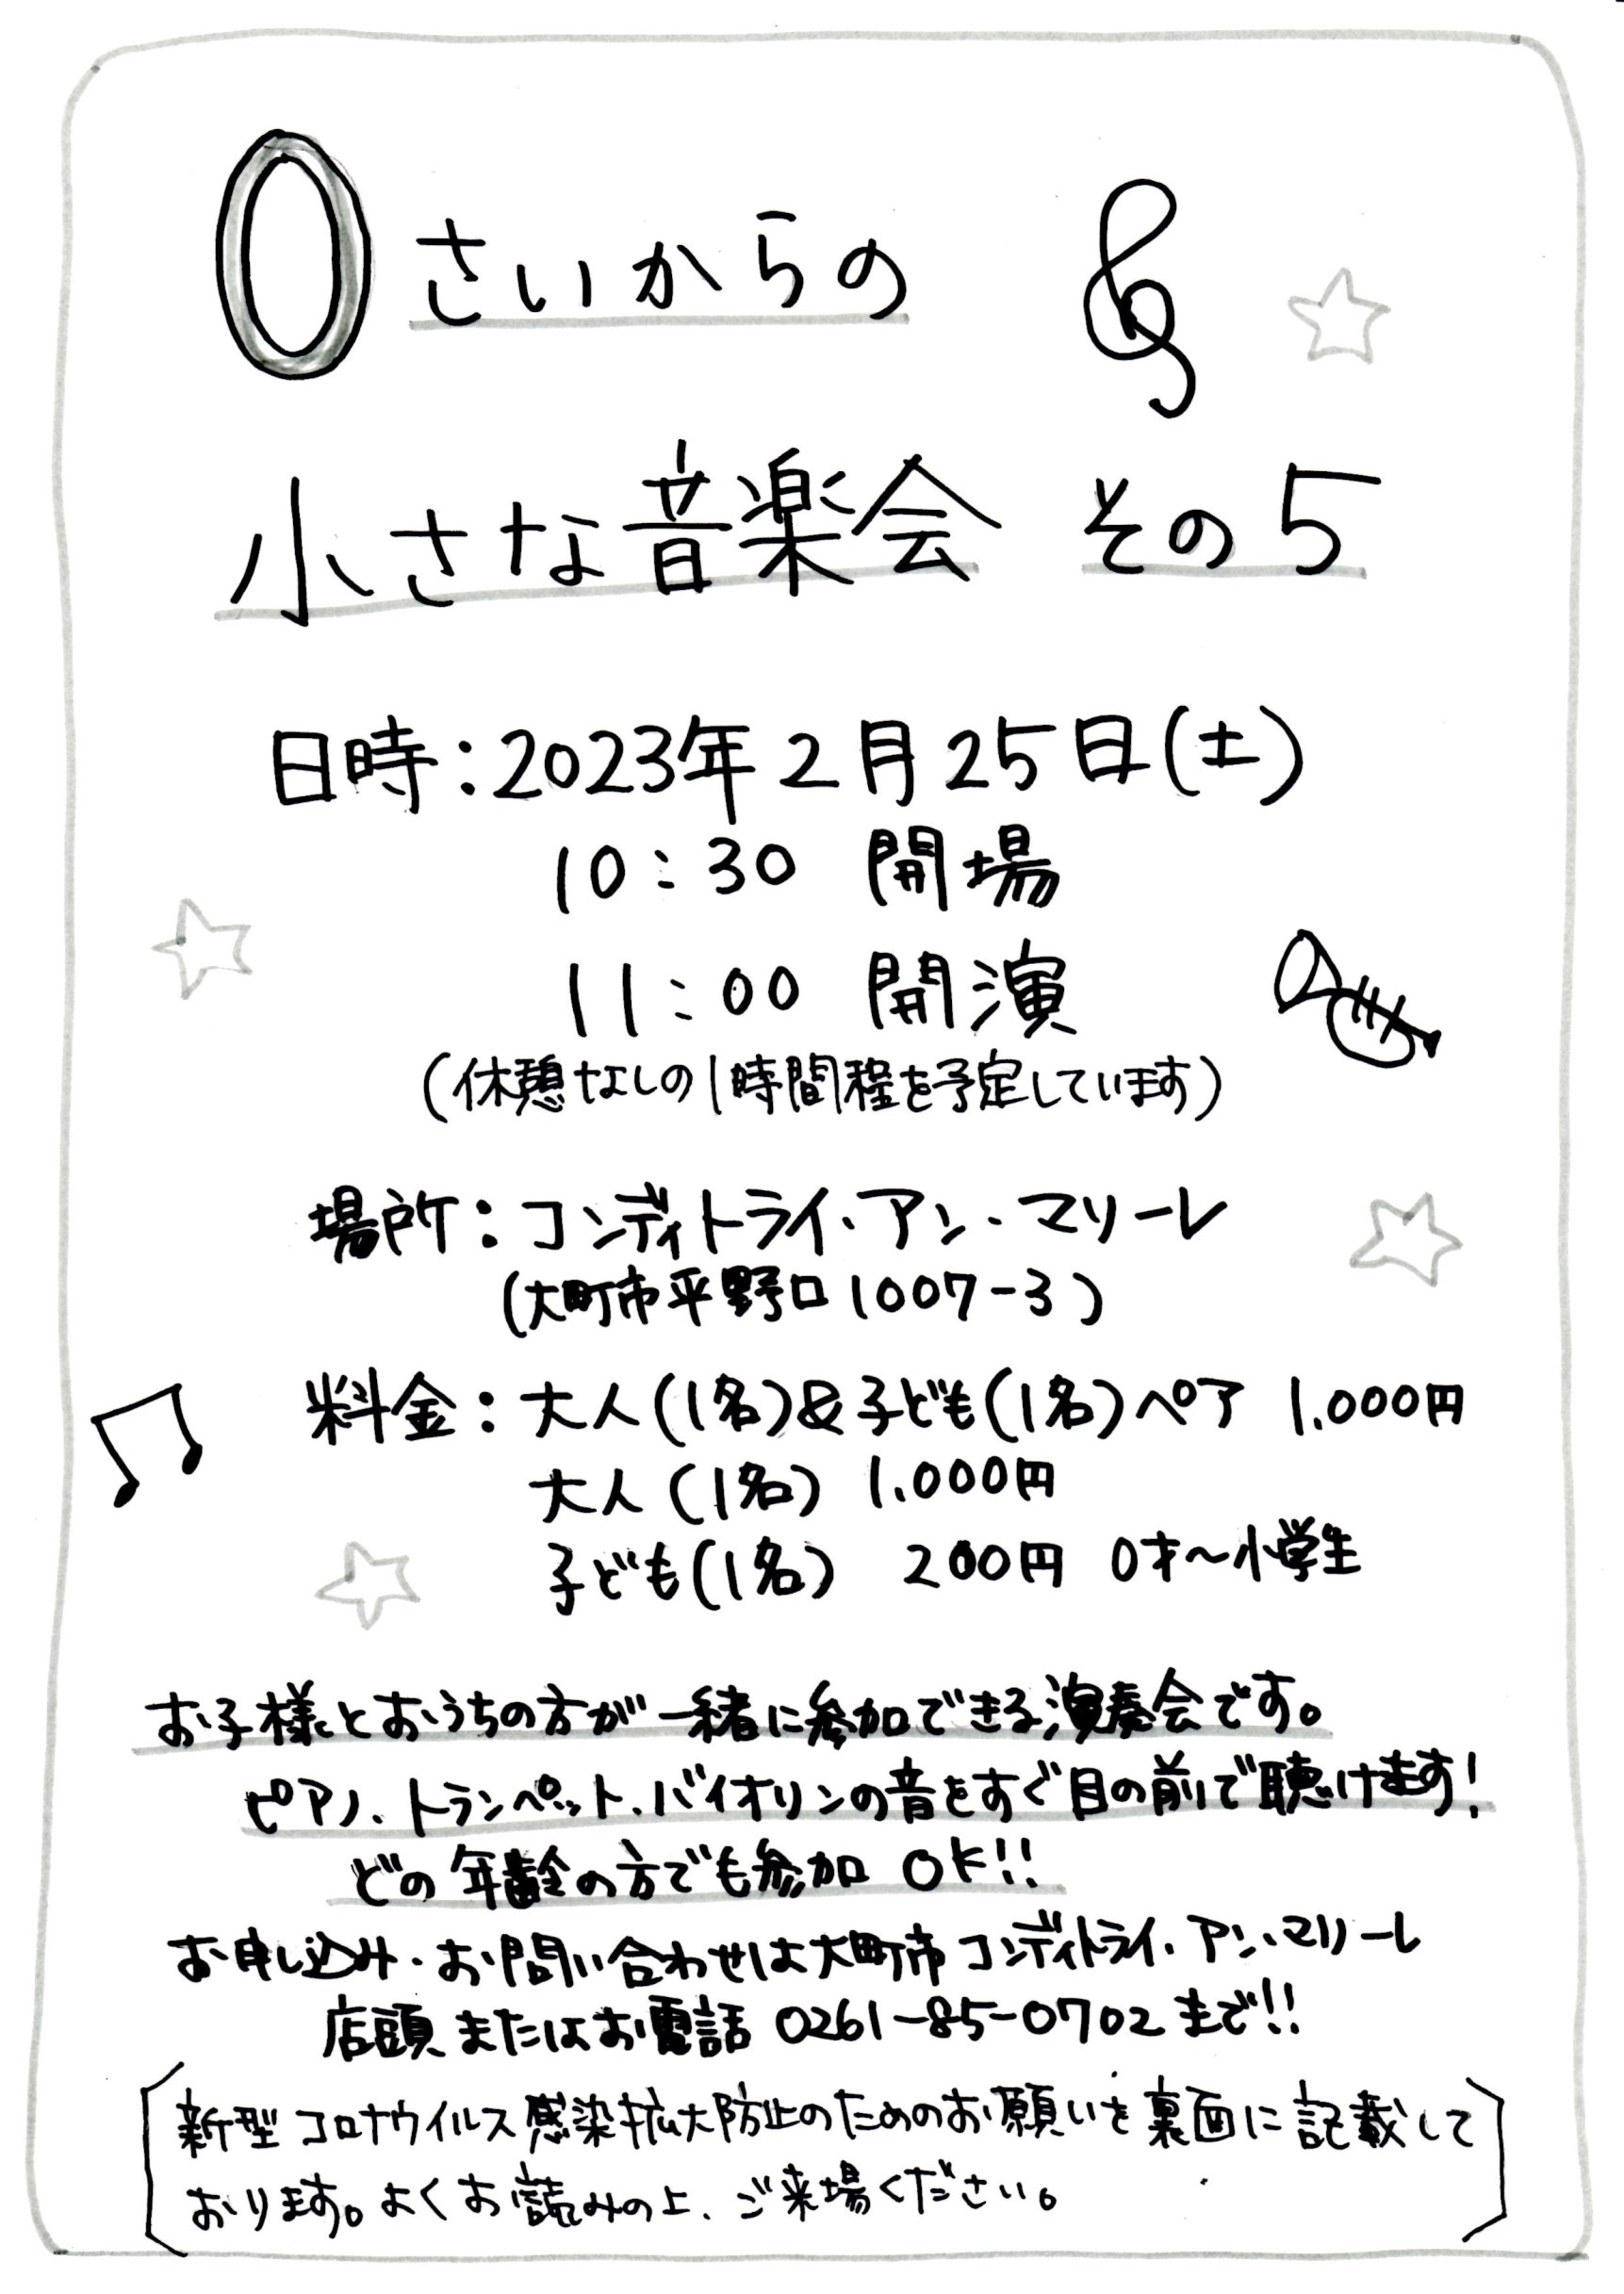 0さいからの
小さな音楽会 その5
日時:2023年2月25日(土)
10:30 開場
11:00 開演
(休憩なしの1時間程を予定しています)
場所:コンディトライ・アン・マリーレ
(大町市平野口1007-3)
料金:大人(1名)&子ども(1名)ペア 1,000円
大人(1名) 1,000円
子ども(1名) 200円 0才~小学生
お子様とおうちの方が一緒に参加できる演奏会です。
ピアノ、トランペット、バイオリンの音をすぐ目の前で聴けます!
どの年齢の方でも参加OK!!
お申し込み・お問い合わせは大町市 コンディトライ・アン・マリーレ
店頭 またはお電話 0261-85-0702 まで!!
新型コロナウイルス感染拡大防止のためのお願いを裏面に記載して
おります。よくお読みの上、ご来場ください。